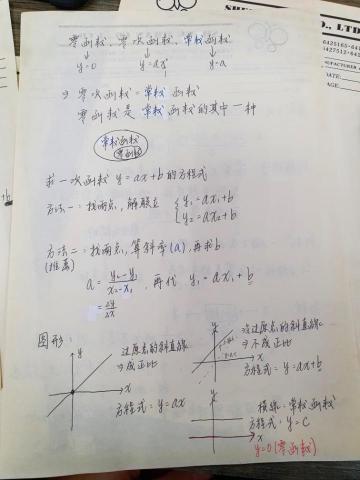 零函數、零次函數、常數函數
y=0 y=ax⁰ y=a
⇒ 零次函數=常數函數
零函數是常數函數的其中一種
常數函數
零函數
求一次函數 y=ax+b 的方程式
方法一:找兩点,解聯立 { y₁=ax₁+b
y₂=ax₂+b
方法二:找兩点,算斜率(a),再求b
(推薦)
a = y₂-y₁ / x₂-x₁ , 再代 y₁=ax₁+b
= Δy / Δx
圖形:
y
x
过原点的斜直線
⇒成正比
方程式:y=ax
y
x
沒过原点的斜直線
⇒不成正比
方程式:y=ax+b
y
x
橫線:常數函數
方程式:y=c
y=0(零函數)
CO., LTD
6425165-6
6427512-6
MANUFACTURER
DATE:
PAGE: